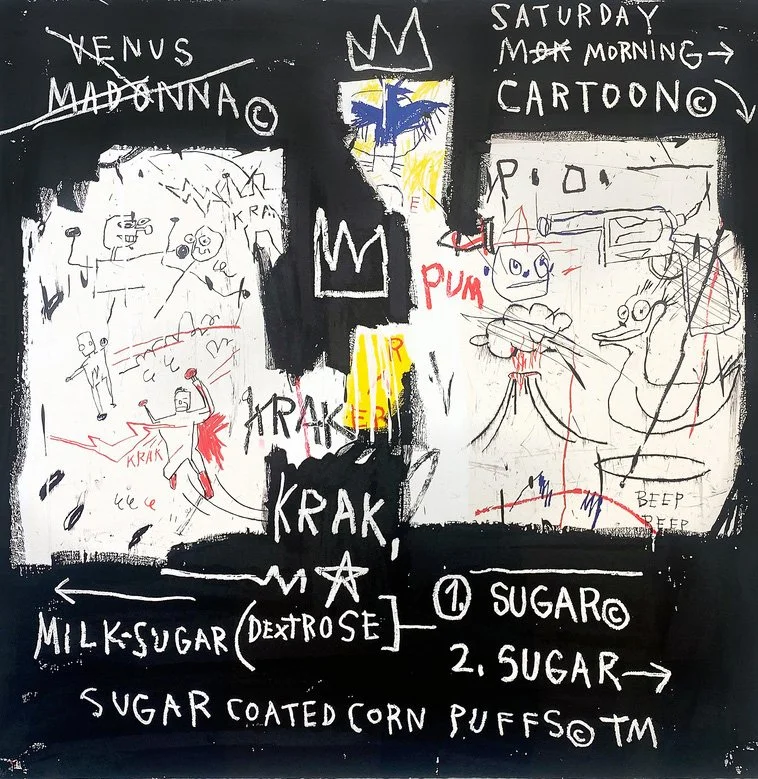 VENUS
MADONNA©
SATURDAY
MORNING→
CARTOON©
KRAK
E
P.O.
PUM
R
KRAK
ER
KRAK
KRAK,
BEEP
BEEP
① SUGAR©
MILK-SUGAR (DEXTROSE]
2. SUGAR→
SUGAR COATED CORN PUFFS© TM